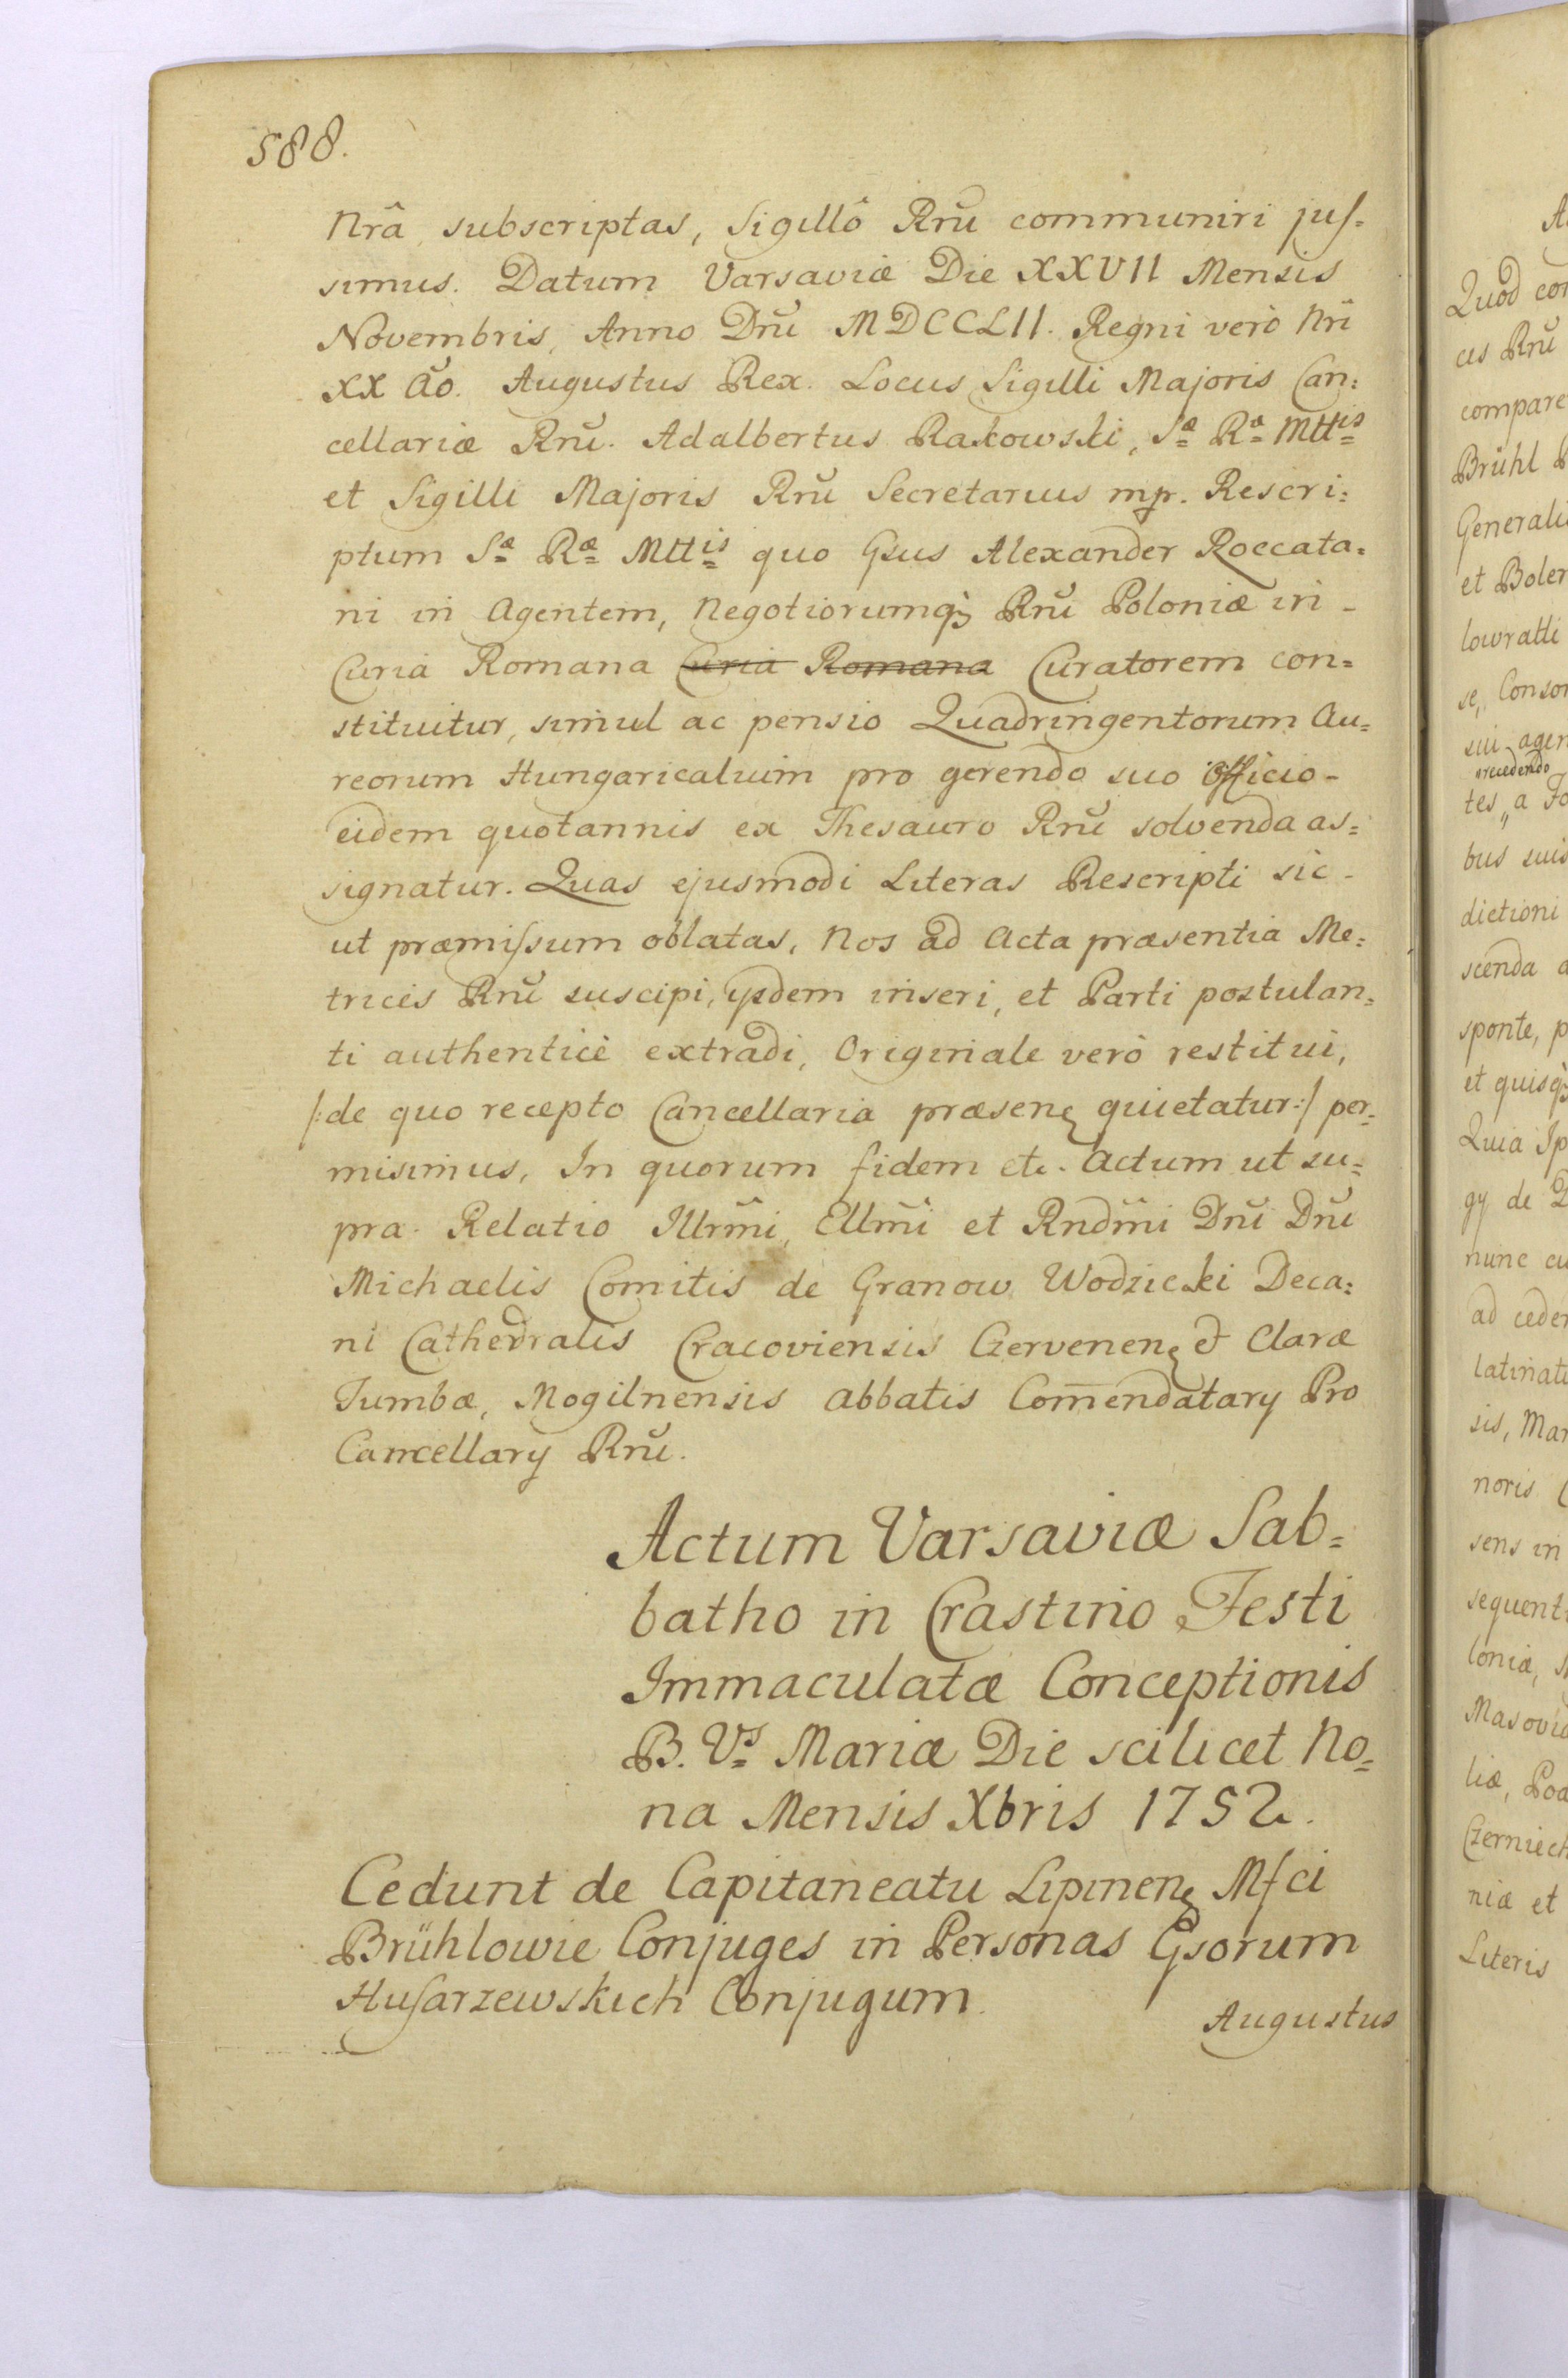 588.
Nrâ subscriptas, Sigillô Rnũ communiri jus-
simus. Datum Varsaviæ Die XXVII Mensis
Novembris, Anno Dnĩ MDCCLII. Regni verò Nrĩ
XX aõ. Augustus Rex. Locus Sigilli Majoris Can=
cellariæ Rnĩ. Adalbertus Rakowski, Sæ Ræ Mttis
et Sigilli Majoris Rnĩ Secretarius mp. Rescri=
ptum Sæ Ræ Mttis quo Gsus Alexander Roccata=
ni in Agentem, Negotiorumq; Rnĩ Poloniæ in -
Curia Romana Curia Romana Curatorem con=
stituitur, simul ac pensio Quadringentorum Au=
reorum Hungaricaluim pro gerendo suo Officio -
eidem quotannis ex Thesauro Rnĩ solvenda as=
signatur. Quas ejusmodi Literas Rescripti sic -
ut præmissum oblatas, Nos ad Acta præsentia Me=
trices Rnĩ suscipi, ysdem inseri, et Parti postulan=
ti authenticè extradi, Originale verò restitui,
/:de quo recepto Cancellaria præsenę quietatur:/ per=
misimus, In quorum fidem etc. Actum ut su=
pra. Relatio Illrm̃i, Ellm̃i et Rndm̃i Dnĩ Dnĩ
Michaelis Comitis de Granow Wodzicki Deca=
ni Cathedralis Cracoviensis Czervenenę & Claræ
Tumbæ, Mogilnensis Abbatis Com̄endatary Pro
Cancellary Rnĩ.
Actum Varsaviæ Sab=
batho in Crastino Festi
Immaculatæ Conceptionis
B. Vs Mariæ Die scilicet No=
na Mensis Xbris 1752.
Cedunt de Capitaneatu Lipinenę Mfci
Brühlowie Conjuges in Personas Gsorum
Husarzewskich Conjugum.
Augustus
Quod con
cis Rnĩ
compare
Brühl
Generali
et Boler
lowratti
se, Conson
sui agen
precedendo
tes, a
bus suis
dictioni
scenda a
sponte, p
et quisq;
Quia Ip
gy de
nunc cu
ad ceden
latinatu
sis, Mar
noris
sens in
sequenti
loniæ,
Masovia
liæ, Pod
Czerniech
niæ et
Literis